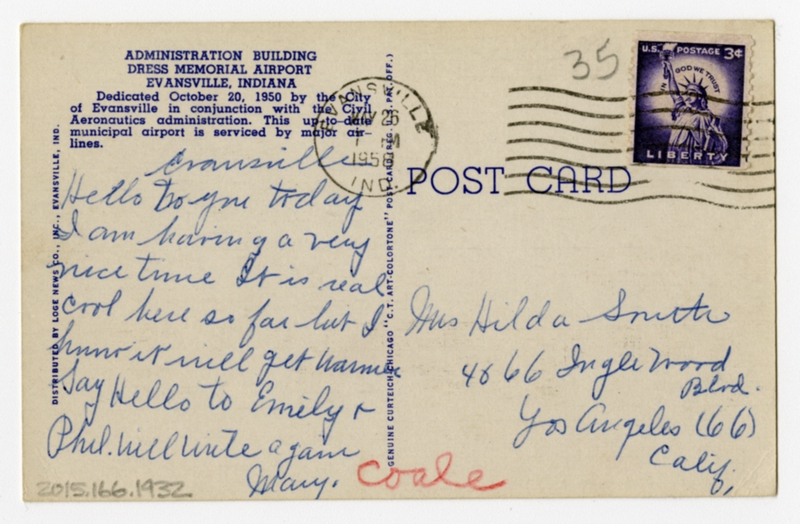 ADMINISTRATION BUILDING
DRESS MEMORIAL AIRPORT
EVANSVILLE, INDIANA
Dedicated October 20, 1950 by the City
of Evansville in conjunction with the Civil
Aeronautics administration. This up-to-date
municipal airport is serviced by major air-
lines.
Evansville
Hello to you today
I am having a very
nice time It is real
cool here so far but I
know it will get warmer
Say Hello to Emily &
Phil. Will write again
Mary.
DISTRIBUTED BY LOGE NEWS CO., INC., EVANSVILLE, IND.
GENUINE CURTEICH-CHICAGO "C.T. ART-COLORTONE" POST CARD (REG. U.S. PAT. OFF.)
EVANSVILLE
26
M
IND.
35
U.S. POSTAGE 3¢
IN GOD WE TRUST
LIBERTY
POST CARD
Mrs Hilda Smith
4866 Inglewood
Blvd.
Los Angeles (66)
Calif.
coale
2015.166.1932